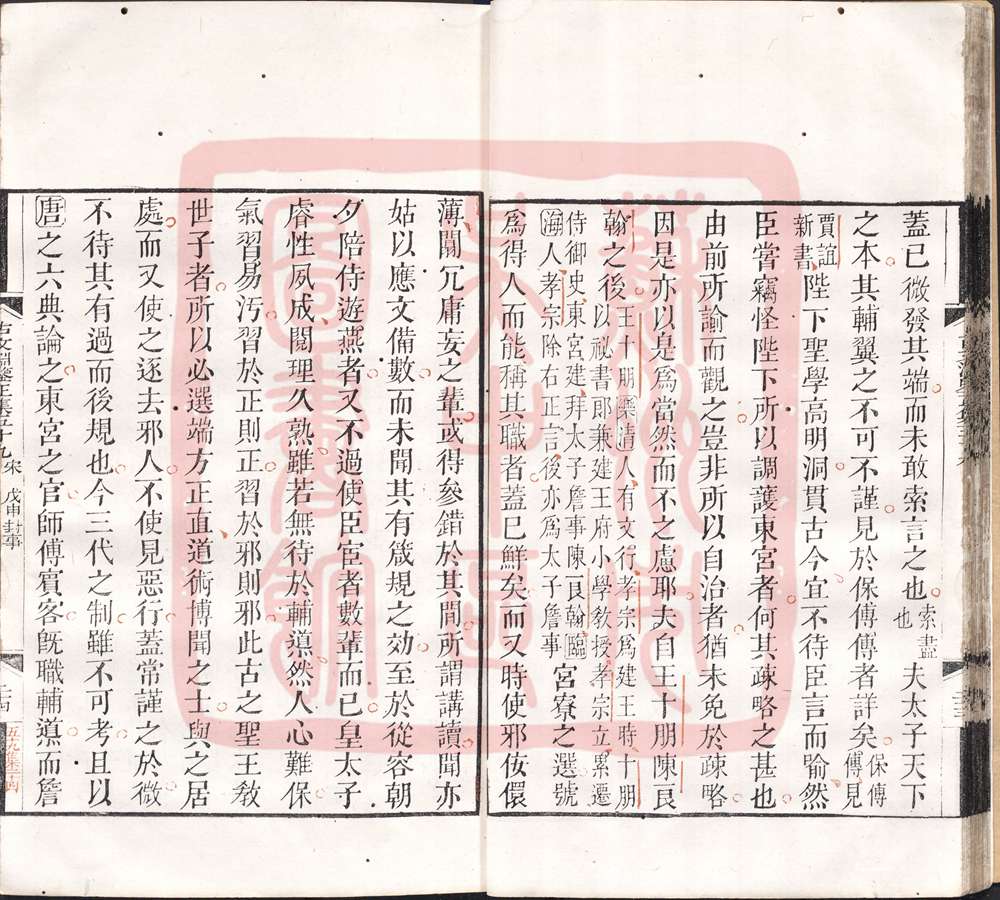 蓋已微發其端而未敢索言之也索盡也夫太子天下
之本其輔翼之不可不謹見於保傅傳者詳矣保傅傳見
賈誼新書陛下聖學高明洞貫古今宜不待臣言而喻然
臣嘗竊怪陛下所以調護東宮者何其疎略之甚也
由前所論而觀之豈非所以自治者猶未免於疎略
因是亦以是爲當然而不之慮耶夫自王十朋陳良
翰之後王十朋樂清人有文行孝宗爲建王時十朋以祕書郎兼建王府小學敎授孝宗立累遷
侍御史東宮建拜太子詹事陳良翰臨海人孝宗除右正言後亦爲太子詹事宮寮之選號
爲得人而能稱其職者蓋已鮮矣而又時使邪佞儇
薄闒冗庸妄之輩或得參錯於其間所謂講讀聞亦
姑以應文備數而未聞其有箴規之効至於從容朝
夕陪侍遊燕者又不過使臣宦者數輩而已皇太子
睿性夙成閱理久熟雖若無待於輔導然人心難保
氣習易汚習於正則正習於邪則邪此古之聖王敎
世子者所以必選端方正直道術博聞之士與之居
處而又使之逐去邪人不使見惡行蓋常謹之於微
不待其有過而後規也今三代之制雖不可考且以
唐之六典論之東宮之官師傅賓客旣職輔導而詹
古文淵鑒正集五十九 宋 戊申封事